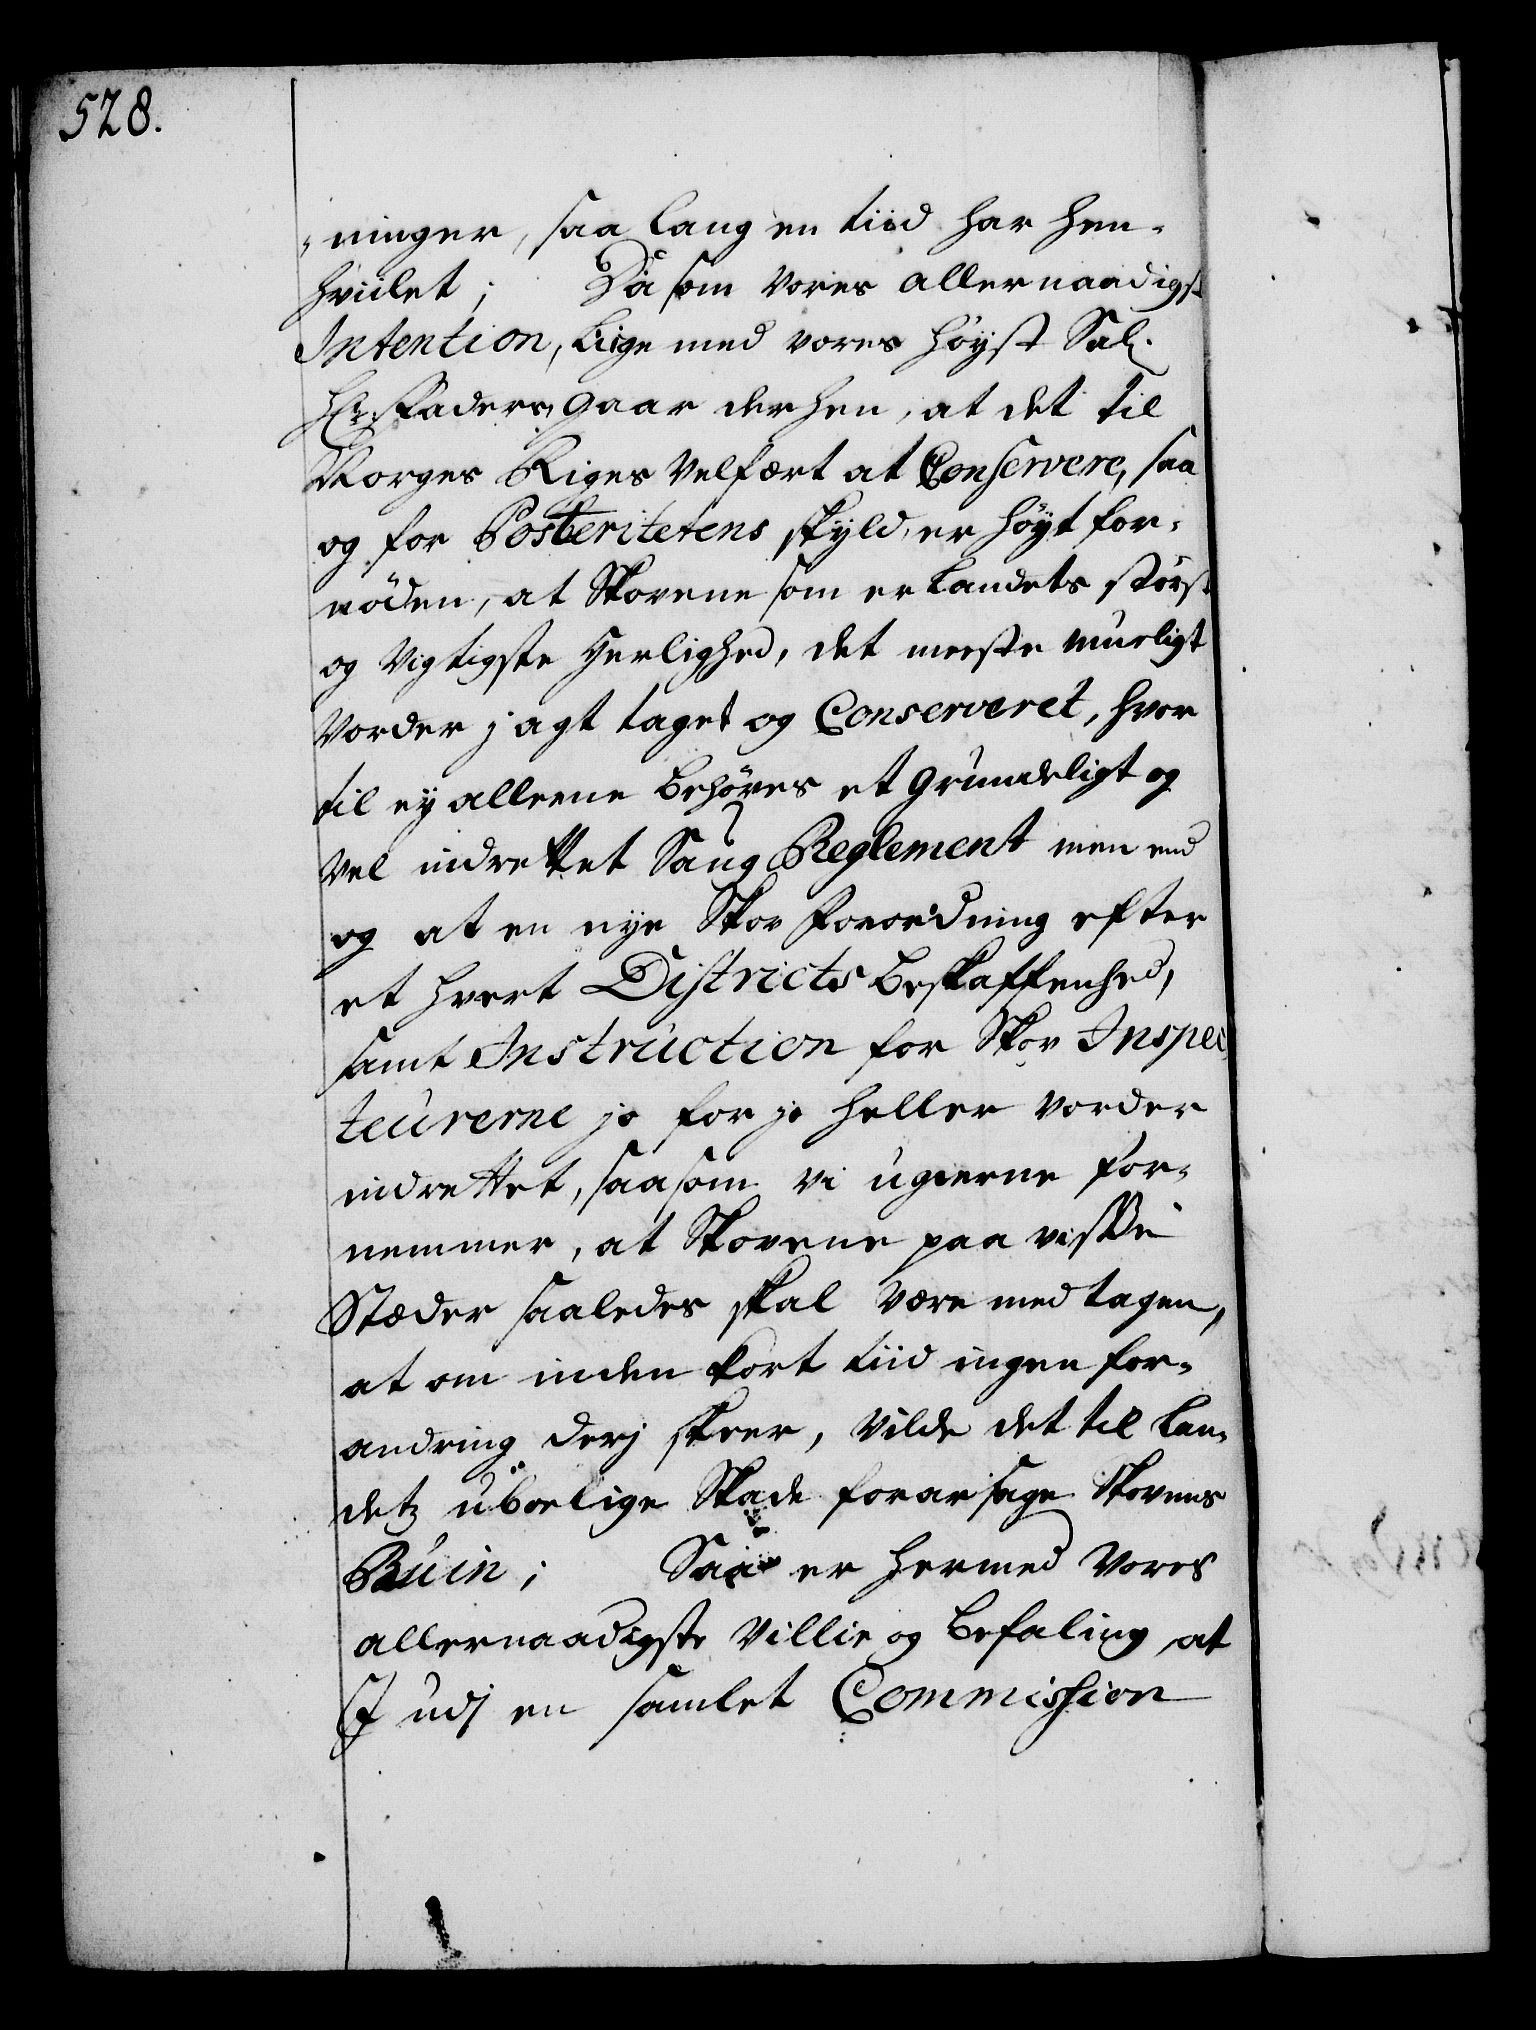 528.
-ninger, saa lang en tiid har hen-
hviilet; Da som vores allernaadigst
Intention, liige med vores höyst Sal.
Hr. Faders, gaar derhen, at det til
Norges Riges Velfært at Conservere, saa
og for Posteritetens skyld, er höyt for-
nöden, at Skovene som er Landets störst
og vigtigste Herlighed, det meeste mueligt
vorder j agt taget og Conserveret, hvor
til ey alleene behöves et grundeligt og
vel indrettet Saug Reglement men end
og at en nye Skov Forordning efter
et hvert Districts beskaffenhed,
samt Instruction for Skov Inspec
teurerne jo for jo heller vorder
indrettet, saasom vi ugierne for-
nemmer, at Skovene paa visse
Stæder saaledes skal være medtagen,
at om inden kort tiid ingen for-
andring derj skeer, vilde det til Lan-
detz ubodelige Skade foraarsage Skovenes
Ruin; Saa er hermed Vores
allernaadigste Villie og befaling, at
I udj en samlet Commission